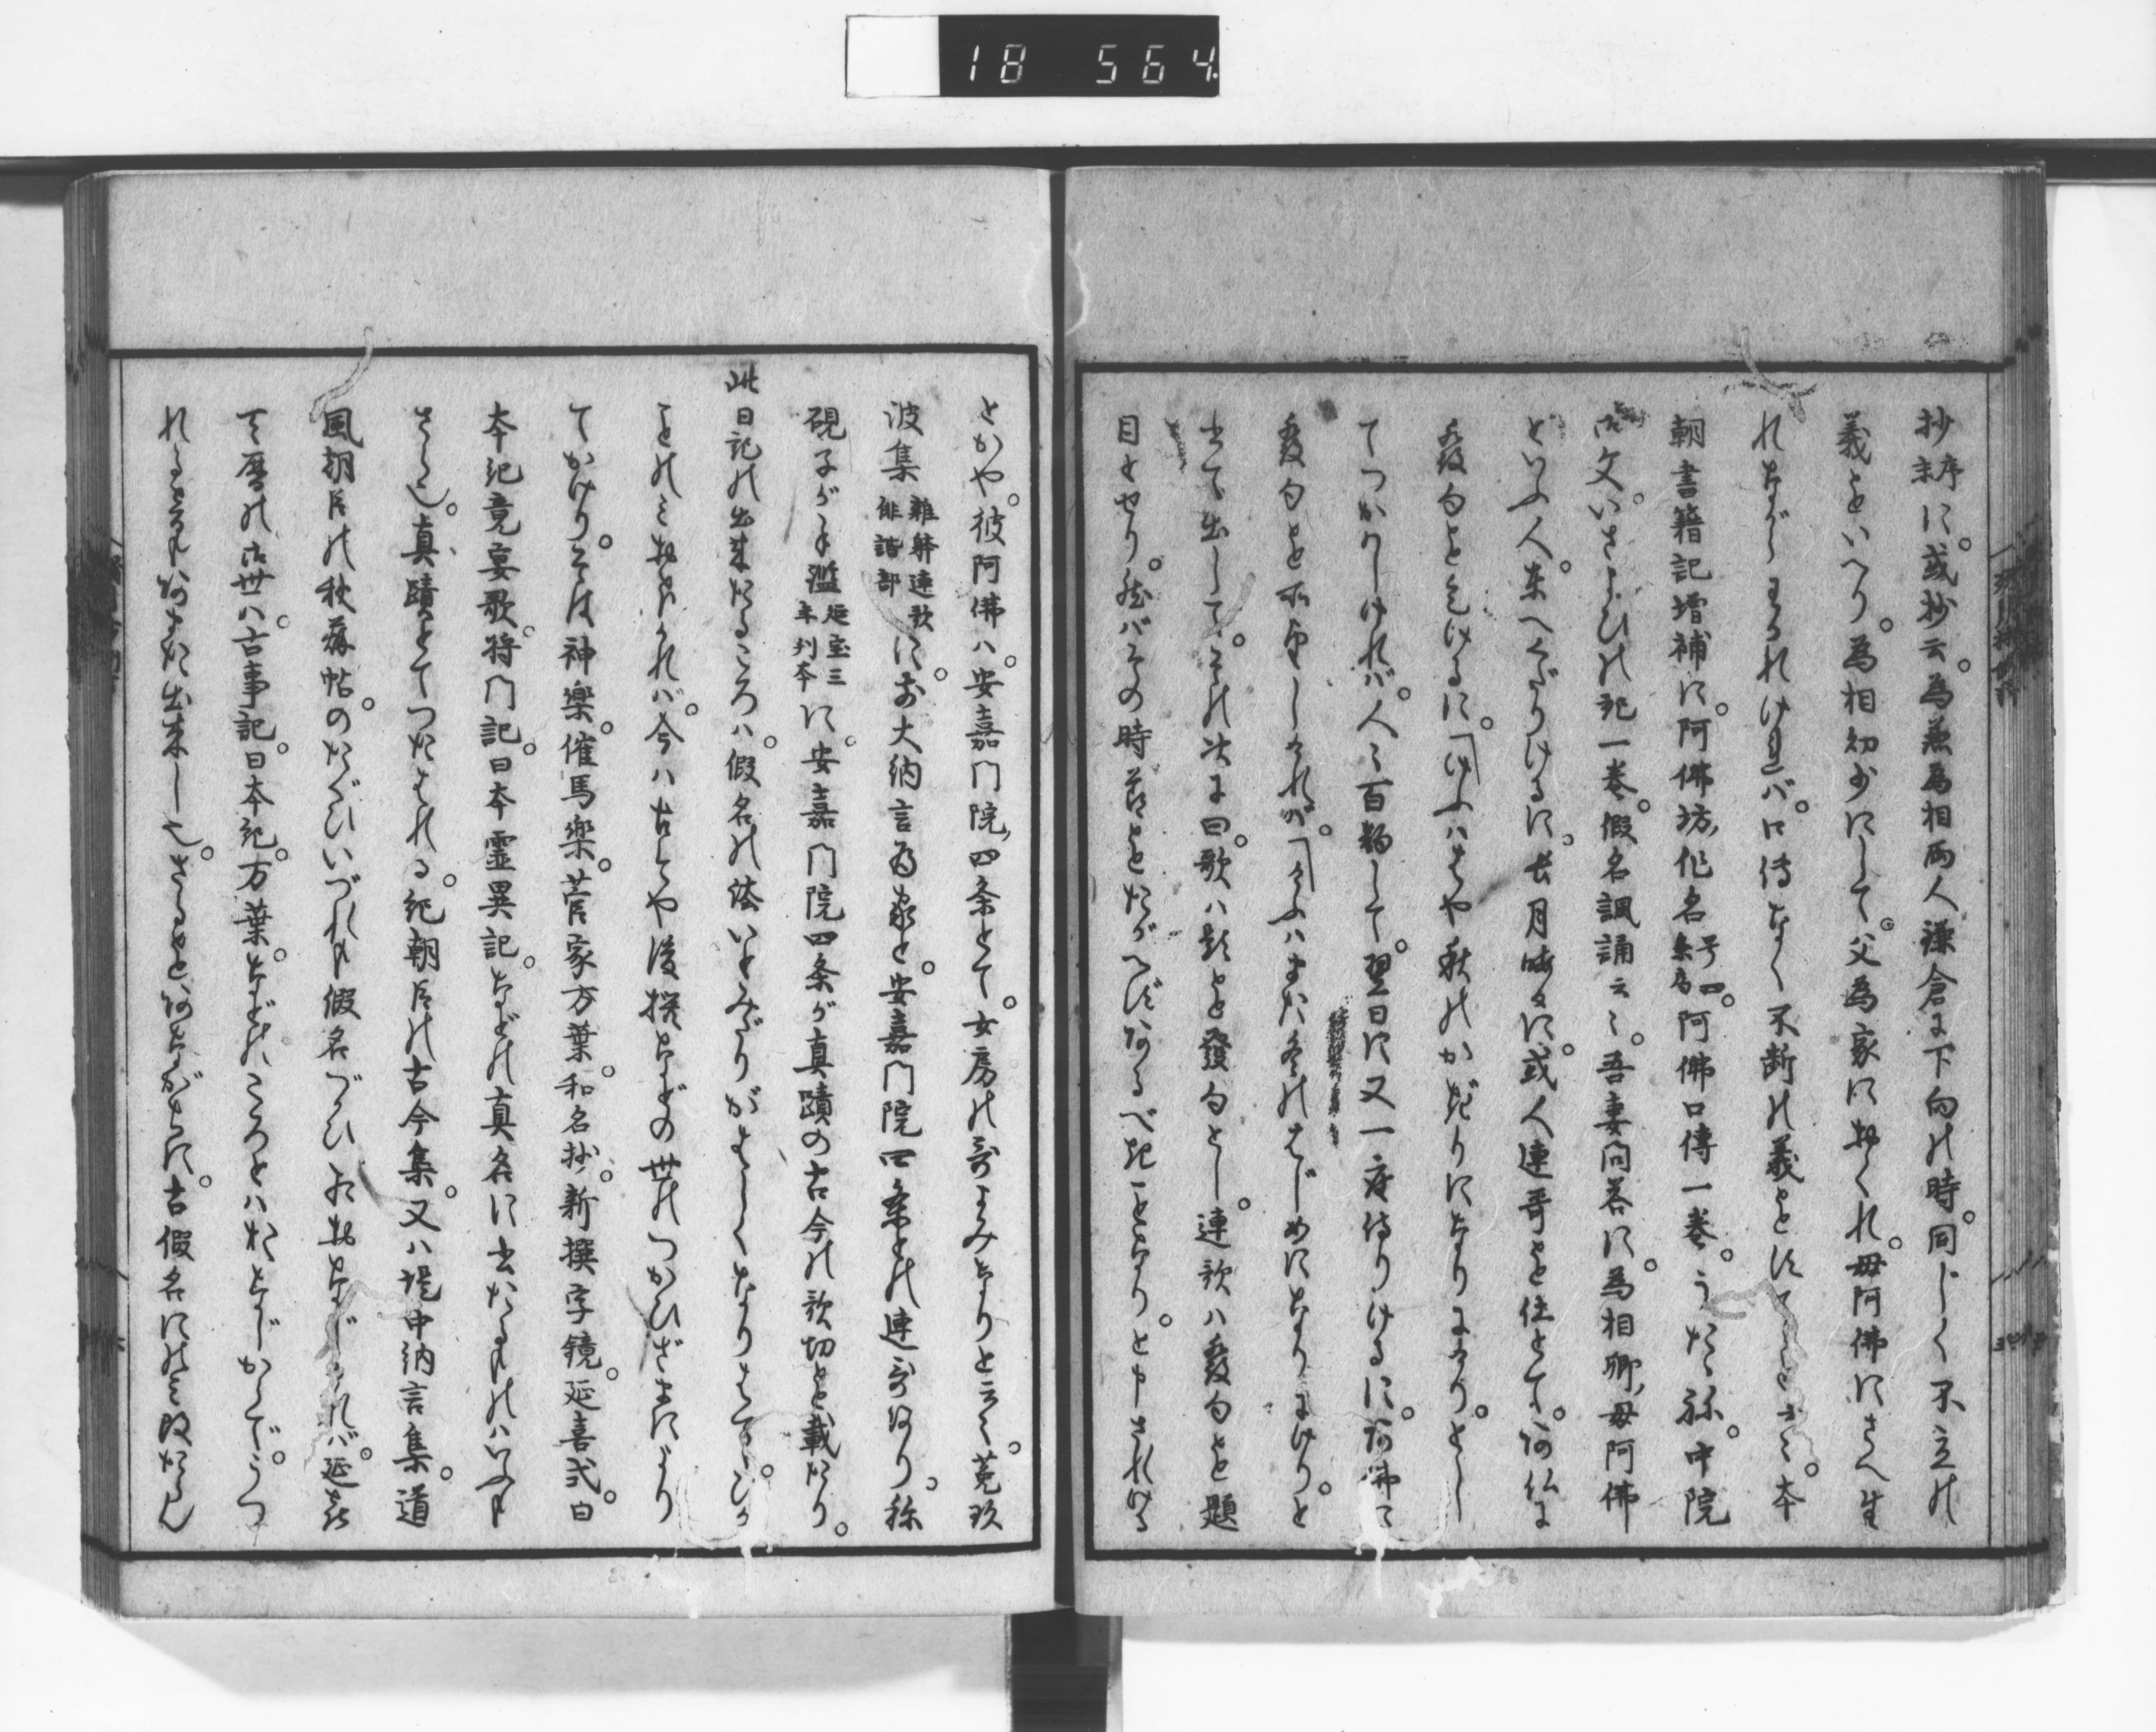 18 564
抄序に。或抄云。為兼為相両人鎌倉に下向の時。同じく不立の
義をいへり。為相幼少にして。父為家におくれ。母阿佛にさへ生
れながらわかれけれバ。口傳なく不断の義を
朝書籍記増補に。阿佛坊作名号四条局。阿佛口傳一巻。うたゝ祢。中院
文。いさよひの記一巻。假名諷誦云々。吾妻問答に。為相卿母阿佛
といふ人。東へくだりけるに。長月晦夕に。或人連哥を仕とて。阿仏に
發句を乞けるに。「けふハはや秋のかぎりになりにけり。とし
てつかハしけれバ。人々百韻して。翌日に又一座侍りけるに。阿佛に
發句を所望しけれバ。「けふハまた冬のはじめになりにけり。と
書て出して。その次に曰。歌ハ影を發句とし。連歌ハ發句を題
目とせり。然バその時節をたがへずあるべきことなり。と申されける
とかや。彼阿佛ハ。安嘉門院四条とて。女房の哥よみなりと云々。菟玖
波集雑躰連歌俳諧部に。前大納言為家と。安嘉門院四条との連哥あり。称
硯子がミ濫延宝三年刊本に。安嘉門院四条が真蹟の古今の歌切を載たり。
此日記の出来たるころハ。假名の法いとみだりがはしくなりもてゆ
ことのミおほかれバ。今ハ古しや後撰などの世のつかひざまにより
てかけり。そは神楽。催馬楽。菅家万葉。和名抄。新撰字鏡。延喜式。日
本紀竟宴歌。将門記。日本霊異記。などの真名に書たるものハいふも
さら也。真蹟とてつたはれる。紀朝臣の古今集。又ハ堤中納言集。道
風朝臣の秋萩帖。のたぐひいづれも假名づかひおなじけれバ。延喜
天暦の御世ハ。古事記。日本紀。万葉。などのころとハおなじからで。うつ
れるさまあまた出来し也。さるを。あながちに。古假名にのミ改たらん